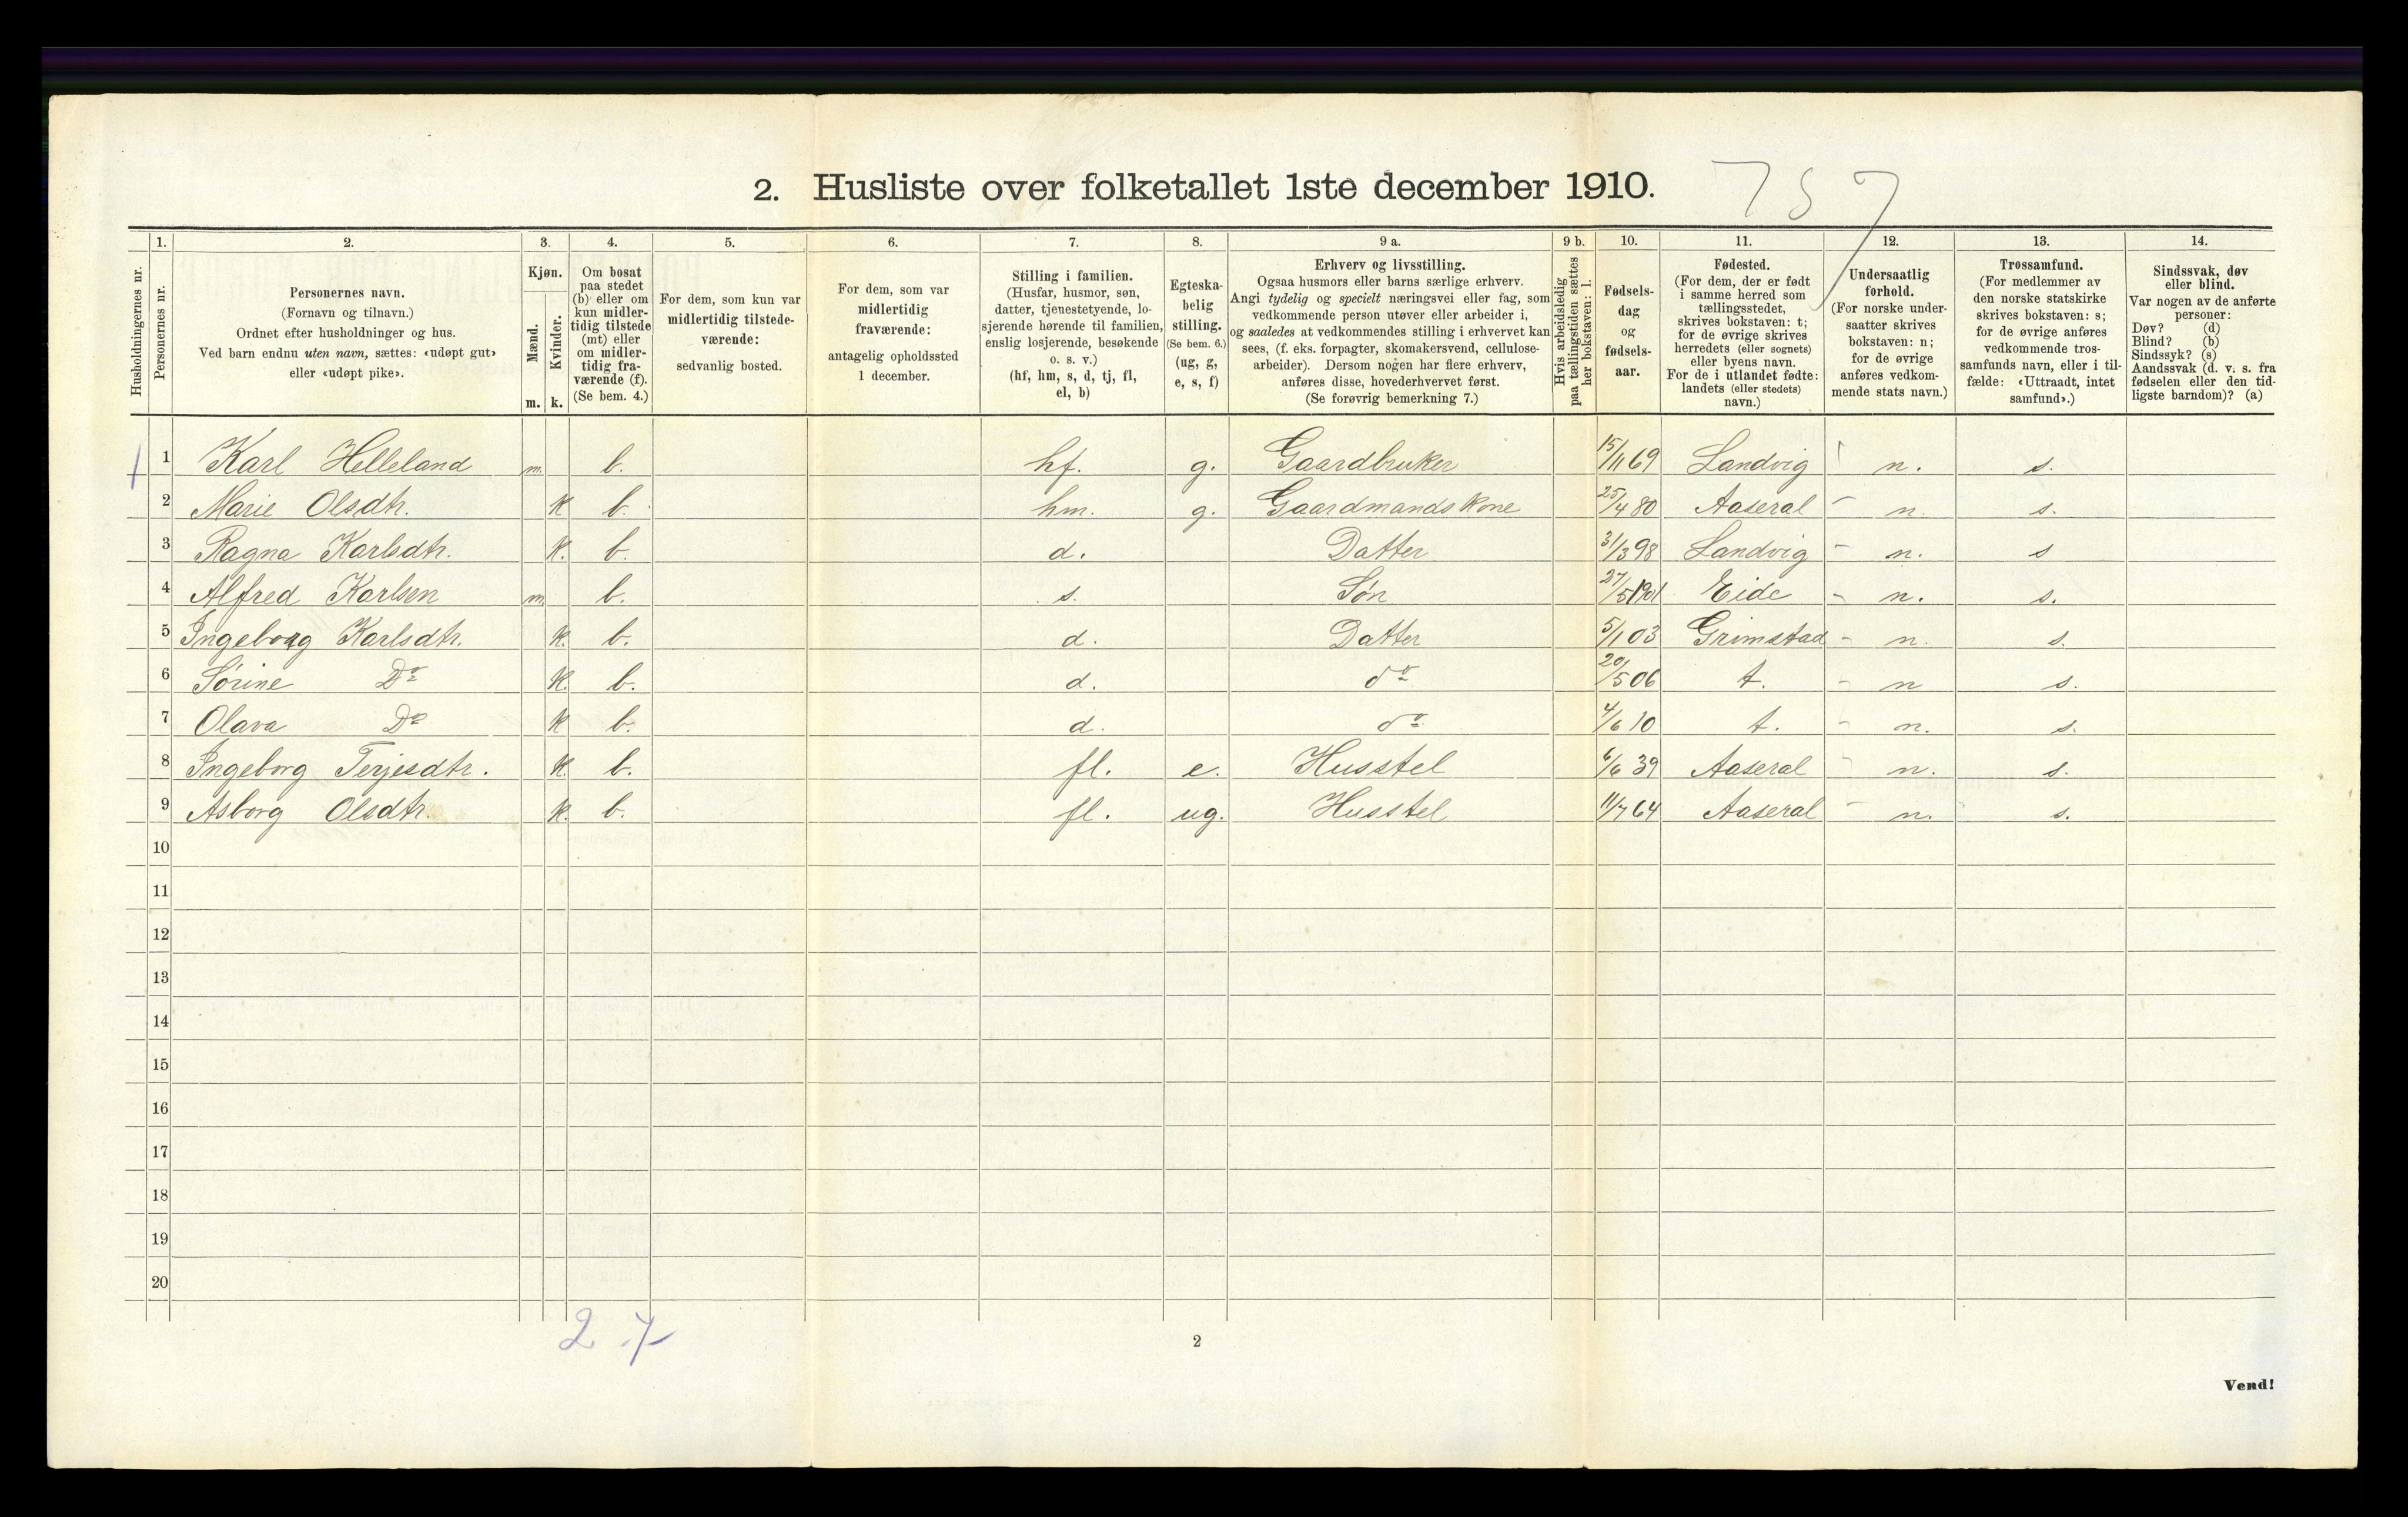 2. Husliste over folketallet 1ste december 1910. 757
Husholdningernes nr.
1. Personernes nr.
2. Personernes navn.
(Fornavn og tilnavn.)
Ordnet efter husholdninger og hus.
Ved barn endnu uten navn, sættes: «udøpt gut»
eller «udøpt pike».
3. Kjøn.
Mænd. Kvinder.
m. k.
4. Om bosat
paa stedet
(b) eller om
kun midler-
tidig tilstede
(mt) eller
om midler-
tidig fra-
værende (f).
(Se bem. 4.)
5. For dem, som kun var
midlertidig tilstede-
værende:
sedvanlig bosted.
6. For dem, som var
midlertidig
fraværende:
antagelig opholdssted
1 december.
7. Stilling i familien.
(Husfar, husmor, søn,
datter, tjenestetyende, lo-
sjerende hørende til familien,
enslig losjerende, besøkende
o. s. v.)
(hf, hm, s, d, tj, fl,
el, b)
8. Egteska-
belig
stilling.
(Se bem. 6.)
(ug, g,
e, s, f)
9 a. Erhverv og livsstilling.
Ogsaa husmors eller barns særlige erhverv.
Angi tydelig og specielt næringsvei eller fag, som
vedkommende person utøver eller arbeider i,
og saaledes at vedkommendes stilling i erhvervet kan
sees, (f. eks. forpagter, skomakersvend, cellulose-
arbeider). Dersom nogen har flere erhverv,
anføres disse, hovederhvervet først.
(Se forøvrig bemerkning 7.)
9 b. Hvis arbeidsledig
paa tællingstiden sættes
her bokstaven: l.
10. Fødsels-
dag
og
fødsels-
aar.
11. Fødested.
(For dem, der er født
i samme herred som
tællingsstedet,
skrives bokstaven: t;
for de øvrige skrives
herredets (eller sognets)
eller byens navn.
For de i utlandet fødte:
landets (eller stedets)
navn.)
12. Undersaatlig
forhold.
(For norske under-
saatter skrives
bokstaven: n;
for de øvrige
anføres vedkom-
mende stats navn.)
13. Trossamfund.
(For medlemmer av
den norske statskirke
skrives bokstaven: s;
for de øvrige anføres
vedkommende tros-
samfunds navn, eller i til-
fælde: «Uttraadt, intet
samfund».)
14. Sindssvak, døv
eller blind.
Var nogen av de anførte
personer:
Døv? (d)
Blind? (b)
Sindssyk? (s)
Aandssvak (d. v. s. fra
fødselen eller den tid-
ligste barndom)? (a)
1 Karl Helleland m. b. hf. g. Gaardbruker 15/11 69 Landvig n. s.
2 Marie Olsdtr. k b. hm. g. Gaardmandskone 25/4 80 Aaseral n. s.
3 Ragna Karlsdtr. k. b. d. Datter 31/3 98 Landvig n. s
4 Alfred Karlsen m b. s. Søn 27/5 1901 Eide n. s.
5 Ingeborg Karlsdtr. k. b. d. Datter 5/1 03 Grimstad n. s.
6 Sørine Do k. b. d. do 20/5 06 t. n s.
7 Olava Do k b. d. do 4/6 10 t. n. s.
8 Ingeborg Terjesdtr. k. b. fl. e. Husstel 6/6 39 Aaseral n. s.
9 Asborg Olsdtr. k. b. fl. ug. Husstel 11/7 64 Aaseral n. s.
10
11
12
13
14
15
16
17
18
19
20
2 7
2
Vend!